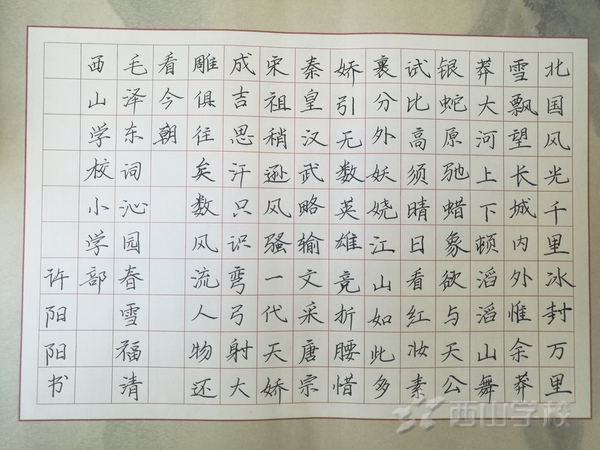 北国风光千里冰封万里
雪飘望长城内外惟余莽
莽大河上下顿滔滔山舞
银蛇原驰蜡象欲与天公
试比高须晴日看红妆素
裹分外妖娆江山如此多
娇引无数英雄竟折腰惜
秦皇汉武略输文采唐宗
宋祖稍逊风骚一代天娇
成吉思汗只识弯弓射大
雕俱往矣数风流人物还
看今朝
毛泽东词沁园春雪福清
西山学校小学部
许阳阳书
西山学校